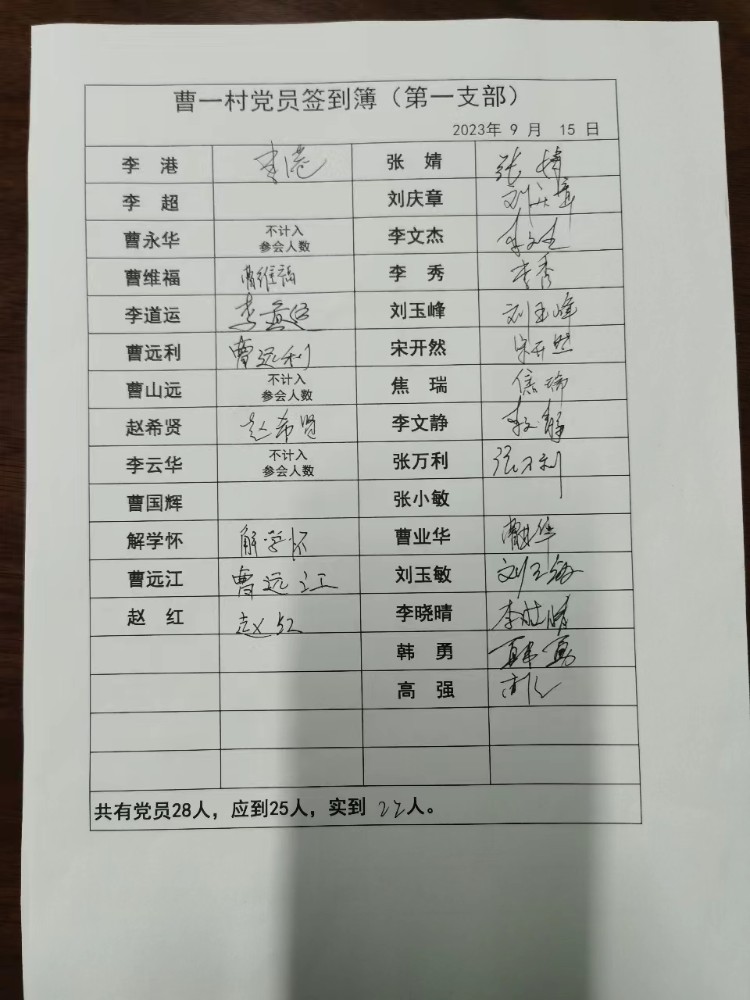 曹一村党员签到簿（第一支部）
2023年 9 月 15 日
李 港 李港 张 婧 张婧
李 超 刘庆章 刘庆章
曹永华 不计入 李文杰 李文杰
参会人数
曹维福 曹维福 李 秀 李秀
李道运 李道运 刘玉峰 刘玉峰
曹远利 曹远利 宋开然 宋开然
曹山远 不计入 焦 瑞 焦瑞
参会人数
赵希贤 赵希贤 李文静 李文静
李云华 不计入 张万利 张万利
参会人数
曹国辉 张小敏
解学怀 解学怀 曹业华 曹业华
曹远江 曹远江 刘玉敏 刘玉敏
赵 红 赵红 李晓晴 李晓晴
韩 勇 韩勇
高 强 高强
共有党员28人，应到25人，实到 22人。